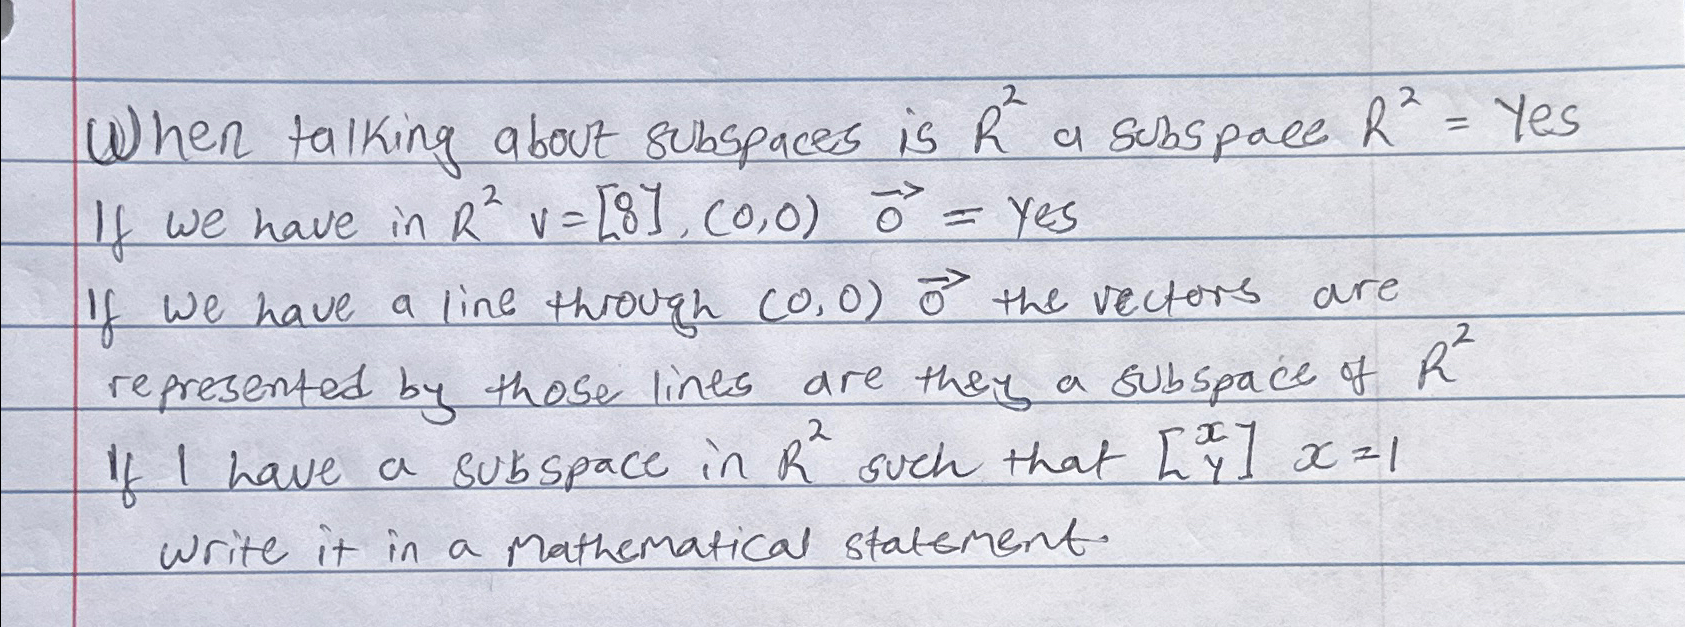 When talking about subspaces is R² a subspace R² = Yes
If we have in R² v = [8], (0,0) 0⃗ = yes
If we have a line through (0,0) 0⃗ the vectors are
represented by those lines are they a subspace of R²
If I have a subspace in R² such that [x y] x = 1
write it in a mathematical statement.